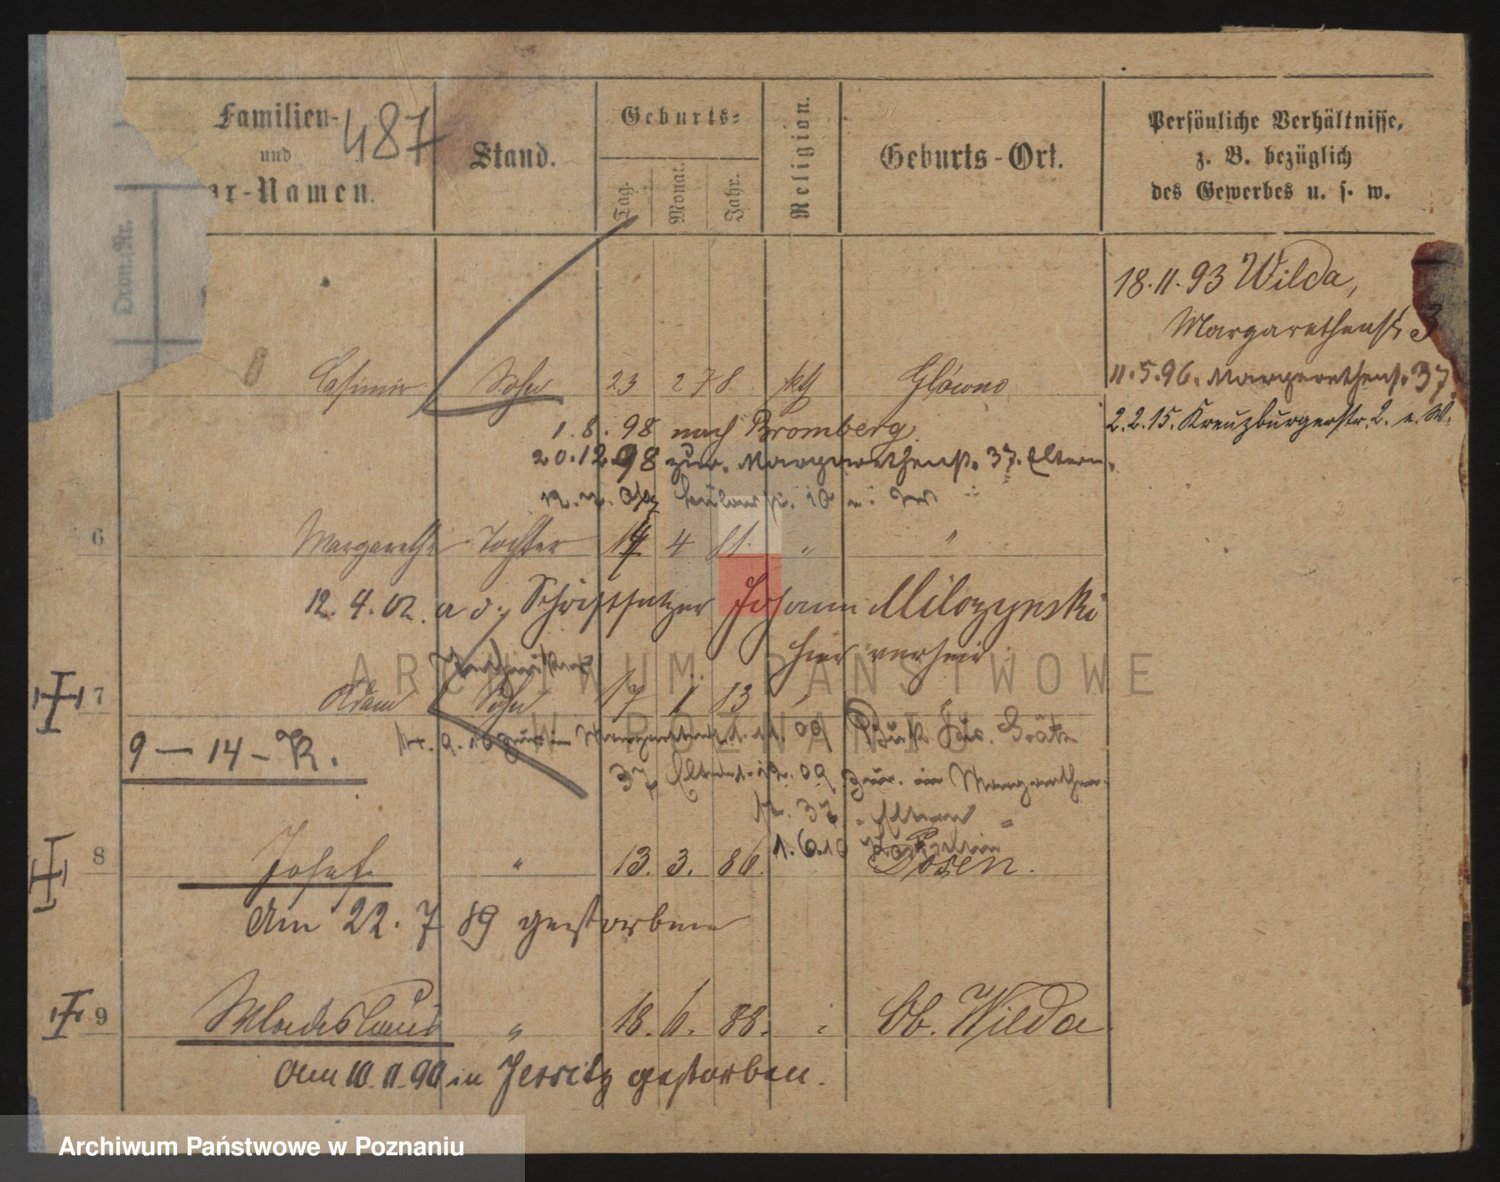 Familien-
und
ar-Namen.
487
Stand.
Geburts-
Tag.
Monat.
Jahr.
Religion.
Geburts-Ort.
Persönliche Verhältnisse,
z. B. bezüglich
des Gewerbes u. s. w.
18.11.93 Wilda,
Margarethenstr. 3
11.5.96. Margarethenstr. 37
2.2.15. Kreuzburgerstr. 2. e. W.
Casimir Sohn 23 2 78 kth Glówno
1.8.98 nach Bromberg
20.12.98 zur. Margarethenstr. 37. Eltern.
6 Margarethe Tochter 14 4 81. " "
12.4.02. a. d. Schriftsetzer Johann Miloszynski
hier verheir.
7 Adam Sohn 17 1 13
9 – 14 – R.
09 Buk Grätz
37 09 zur. in Margarethen-
37 Eltern
1.6.10
8 Josef " 13. 3. 86. Posen.
Am 22.7 89 gestorben
9 Wladislaus " 18. 6. 88. Ob. Wilda
Am 10.11.90 in Jersitz gestorben.
ARCHIWUM PAŃSTWOWE
W POZNANIU
Archiwum Państwowe w Poznaniu